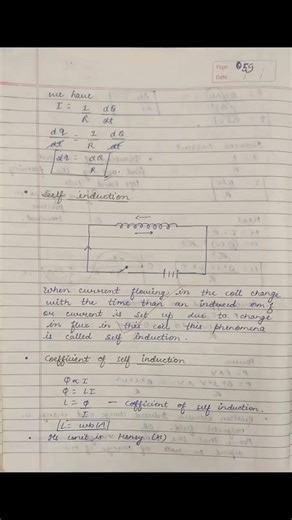 Page: 059
Date
we have
I = 1 dQ
R dt
dq = 1 dQ
dt R dt
dq = dQ
R
• Self induction
When current flowing in the coil change
with the time than an induced emf
or current is set up due to change
in flux in this coil this phenomena
is called self induction.
• Coefficient of self induction
Φ ∝ I
Φ = LI
L = Φ — coefficient of self induction.
I
L = wb/A
• Its unit is Henry (H)